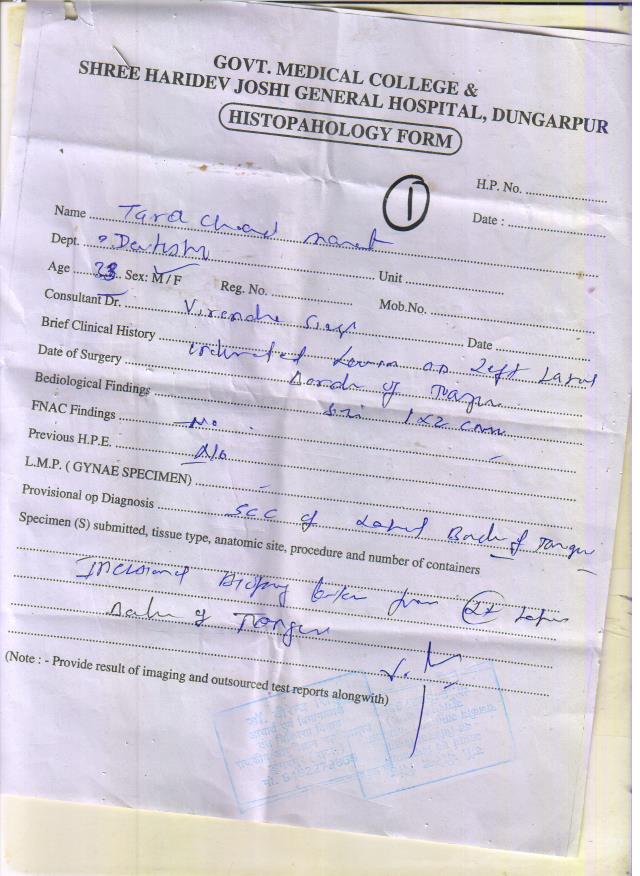 GOVT. MEDICAL COLLEGE &
SHREE HARIDEV JOSHI GENERAL HOSPITAL, DUNGARPUR
HISTOPAHOLOGY FORM
1
H.P. No. ..................
Name ........ Tara Chand
Date : ..................
Dept. ........ Dentistry
Unit ..................
Age ........ Sex: M / F
Reg. No. ..................
Mob.No. ..................
Consultant Dr. ........ Virendra Singh
Date ..................
Brief Clinical History ........ on Left Lateral
Date of Surgery ........ Border of Tongue
Bediological Findings ........ 1x2 cm
FNAC Findings ........ No
Previous H.P.E. ........ No
L.M.P. ( GYNAE SPECIMEN) ........ -
Provisional op Diagnosis ........ SCC of Lateral Border of Tongue
Specimen (S) submitted, tissue type, anatomic site, procedure and number of containers
Incisional Biopsy taken from Lt Lateral
Border of Tongue
(Note : - Provide result of imaging and outsourced test reports alongwith)